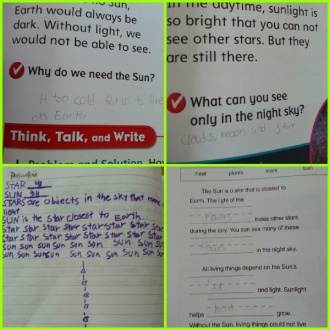 no Sun,
Earth would always be
dark. Without light, we
would not be able to see.
Why do we need the Sun?
It too cold for us to live
on Earth
Think, Talk, and Write
In the daytime, sunlight is
so bright that you can not
see other stars. But they
are still there.
What can you see
only in the night sky?
clouds, moon and star
STAR
SUN
STARS are objects in the sky that
light
SUN is the Star closest to Earth.
Star Star Star Star Star Star Star Star
Star Star Star Star Star Star Star Star
Sun Sun Sun Sun Sun Sun Sun Sun
Sun Sun Sun Sun Sun Sun Sun Sun
heat plants stars Sun
The Sun is a star that is closest to
Earth. The light of the
hides other stars
during the day. You can see many of these
in the night sky.
All living things depend on the Sun's
and light. Sunlight
helps grow.
Without the Sun, living things could not live